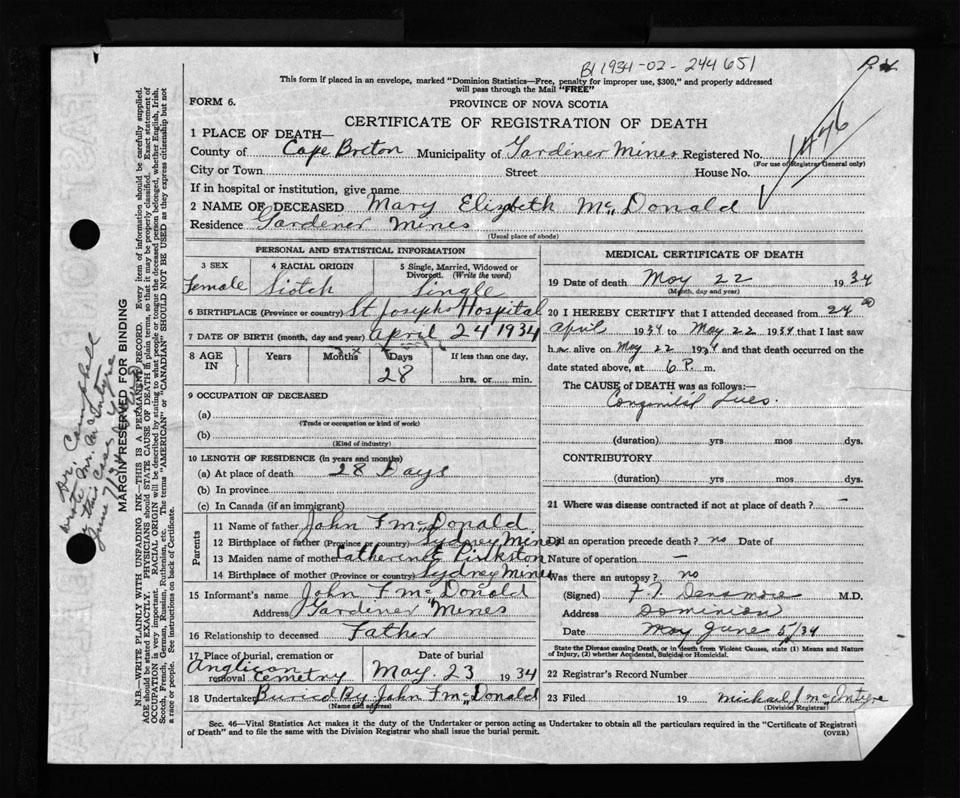 B1 1934-02-244651
This form if placed in an envelope, marked "Dominion Statistics—Free, penalty for improper use, $300," and properly addressed
will pass through the Mail "FREE"
FORM 6.
PROVINCE OF NOVA SCOTIA
CERTIFICATE OF REGISTRATION OF DEATH
1476
1 PLACE OF DEATH—
County of Cape Breton Municipality of Gardener Mines Registered No.
(For use of Registrar General only)
City or Town Street House No.
If in hospital or institution, give name
2 NAME OF DECEASED Mary Elizbeth McDonald
Residence Gardener Mines
(Usual place of abode)
PERSONAL AND STATISTICAL INFORMATION
3 SEX 4 RACIAL ORIGIN 5 Single, Married, Widowed or
Divorced. (Write the word)
Female Siotch Single
6 BIRTHPLACE (Province or country) St Josephs Hospital
7 DATE OF BIRTH (month, day and year) april 24 1934
8 AGE IN Years Months Days If less than one day,
28 hrs. or min.
9 OCCUPATION OF DECEASED
(a)
(Trade or occupation or kind of work)
(b)
(Kind of industry)
10 LENGTH OF RESIDENCE (in years and months)
(a) At place of death 28 Days
(b) In province
(c) In Canada (if an immigrant)
Parents
11 Name of father John F McDonald
12 Birthplace of father (Province or country) Sydney Mines
13 Maiden name of mother Catherine
14 Birthplace of mother (Province or country) Sydney Mines
15 Informant's name John F McDonald
Address Gardener Mines
16 Relationship to deceased Father
17 Place of burial, cremation or removal Anglican Cemetry
Date of burial
May 23 1934
18 Undertaker Buried By John F McDonald
(Name and address)
MEDICAL CERTIFICATE OF DEATH
19 Date of death May 22 1934
(Month, day and year)
20 I HEREBY CERTIFY that I attended deceased from 24
april 1934 to May 22 1934 that I last saw
h alive on May 22 1934 and that death occurred on the
date stated above, at 6 P. m.
The CAUSE of DEATH was as follows:—
Congenital Lues.
(duration) yrs mos dys.
CONTRIBUTORY
(duration) yrs. mos. dys.
21 Where was disease contracted if not at place of death? —
Did an operation precede death? no Date of
Nature of operation —
Was there an autopsy? no
(Signed) F. T. Densmore M.D.
Address Dominion
Date May June 5/34
State the Disease causing Death, or in death from Violent Causes, state (1) Means and Nature
of Injury, (2) whether Accidental, Suicidal or Homicidal.
22 Registrar's Record Number
23 Filed 19 Michael J McIntyre
(Division Registrar)
Sec. 46—Vital Statistics Act makes it the duty of the Undertaker or person acting as Undertaker to obtain all the particulars required in the "Certificate of Registrati
of Death" and to file the same with the Division Registrar who shall issue the burial permit.
(OVER)
MARGIN RESERVED FOR BINDING
N.B.—WRITE PLAINLY WITH UNFADING INK—THIS IS A PERMANENT RECORD. Every item of information should be carefully supplied.
AGE should be stated EXACTLY. PHYSICIANS should STATE CAUSE OF DEATH in plain terms, so that it may be properly classified. Exact statement of
OCCUPATION is very important. RACIAL ORIGIN will be described by stating to what people or tongue the deceased person belonged, whether English, Irish,
Scotch, French, German, Russian, Ruthenian, etc. The terms "AMERICAN" or "CANADIAN" SHOULD NOT BE USED as they express citizenship but not
a race or people. See instructions on back of Certificate.
Dr. Campbell
wrote Mr. McIntyre
this case
June 7/34